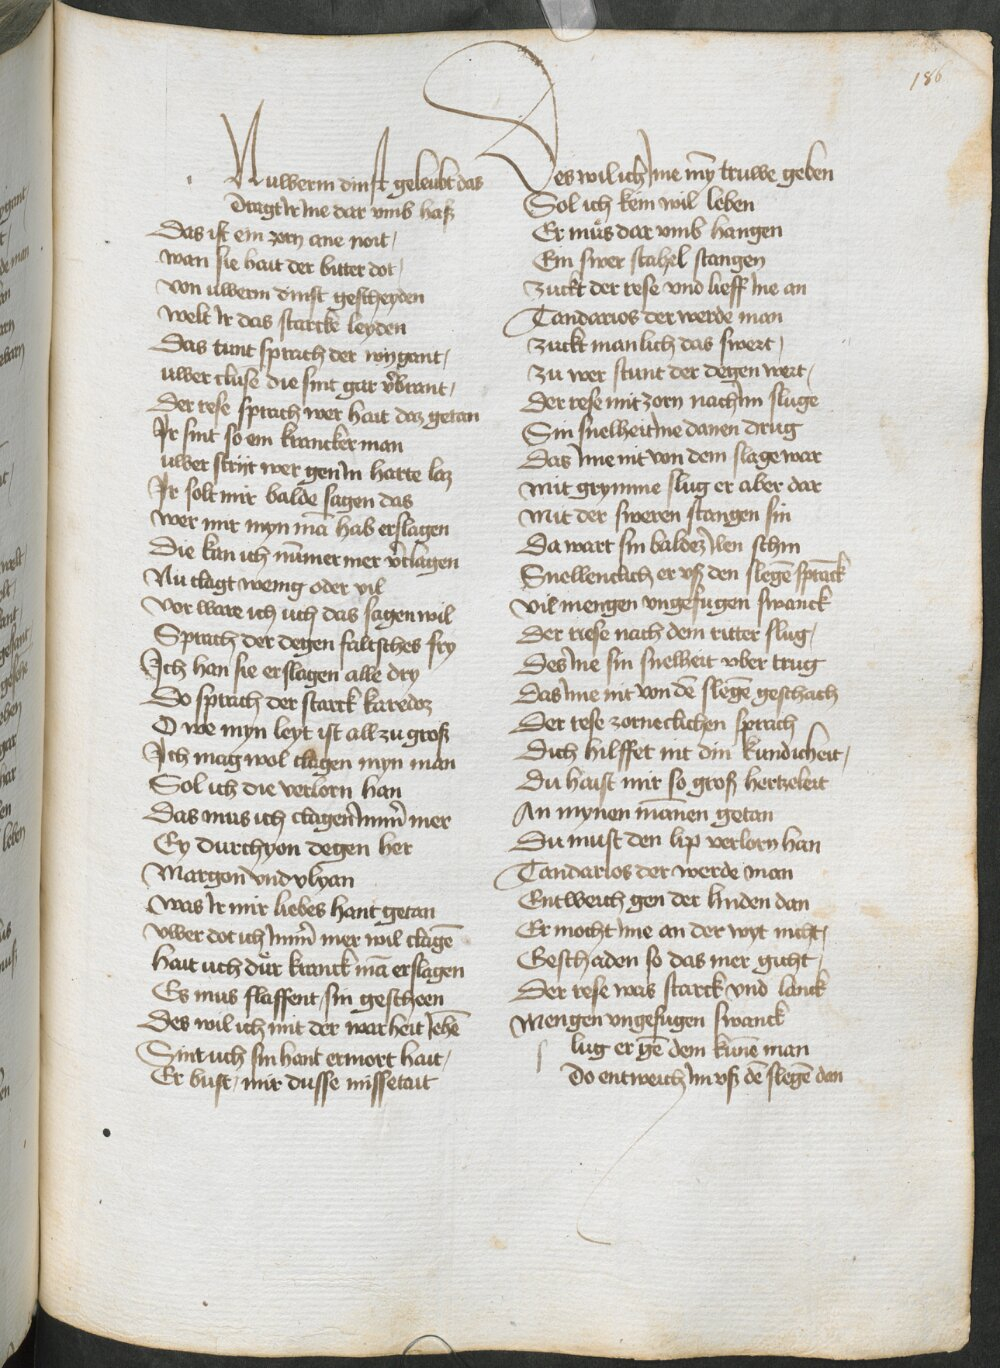 186
Nuwerm dinst geleubt das
Dragt ir ine dar vmb haß
Das ist ein zorn ane noit
wan sie hait der bitter dot
von uwerm dinst gescheyden
welt ir das starcke leyden
Das tunt sprach der wygant
uwer cluse die sint gar v̾brant
Der rese sprach wer hait daz getan
Ir sint so ein krancker man
uwer strijt wer gen in harte laz
Ir solt mir balde sagen das
wer mir myn mā hab erslagen
Die kan ich nūmer mer v̾clagen
Nu clagt wenig oder vil
vor ware ich uch das sagen wil
Sprach der degen faltsches fry
Ich han sie erslagen alle dry
Do sprach der starck karedoz
O we myn leyt ist all zu groß
Ich mag wol clagen myn man
Sol ich die verlorn han
Das mus ich clagen im̄er mer
Ey durchyon degen her
Margon vnd vlyan
was ir mir liebes hant getan
vwer dot ich im̄er mer wil clagē
hait uch dür kranck mā erslagen
Es mus slaffent sin gescheen
Des wil ich mit der warheit iehē
Sint uch sin hant ermort hait
Er bust mir dusse missetait
Des wil ich ime mȳ truwe geben
Sol ich kein wil leben
Er můs dar vmb hangen
Ein swer stahel stangen
zuckt der rese vnd lieff ine an
Tandarios der werde man
zuckt manlich das swert
zu wer stunt der degen wert
Der rese mit zorn nach im sluge
Sin snelheit ine danen drug
Das ime nit von dem slage war
mit grymme slug er aber dar
Mit der sweren stangen sin
Da wart sin baldez ilen schin
Snelleclich er vß den slegē sprāck
vil mengen vngefugen swanck
Der riese nach dem ritter slug
Des ine sin snelheit vber trug
Das ime nit von dē slegē geschach
Der rese zorneclichen sprach
Dich hilffet nit din kundicheit
Du haist mir so groß hertzeleit
An mynen mānen getan
Du must den lip verlorn han
Tandarios der werde man
Entweich gen der linden dan
Er mocht ime an der wyt nicht
Geschaden so das mer gicht
Der rese was starck vnd lanck
Mengen vngefugen swanck
slug er gē dem kūne man
Do entweich im vß dē slegē dan